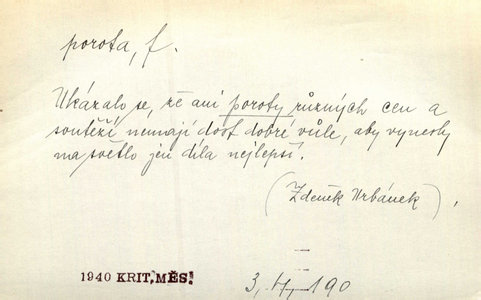 porota, f.
Ukázalo se, že ani poroty různých cen a
soutěží nemají dost dobré vůle, aby vynesly
na světlo jen díla nejlepší.
(Zdeněk Urbánek),
1940 KRIT. MĚS.
3, 190